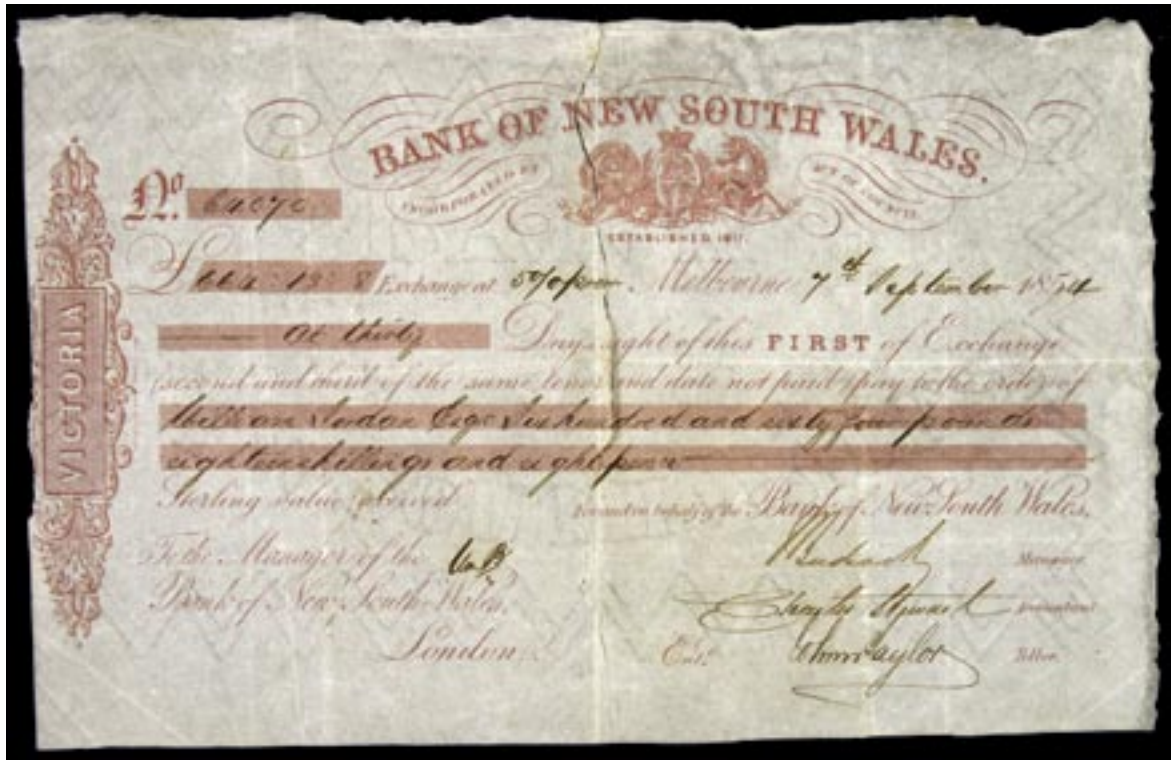 BANK OF NEW SOUTH WALES.
INCORPORATED BY ACT OF COUNCIL
ESTABLISHED 1817.
No.
VICTORIA
£ 664 " 18 " 8 Exchange at 5% prem Melbourne 7th September 1854
At thirty Days sight of this FIRST of Exchange
(second and third of the same tenor and date not paid) pay to the order of
William Esqr Six hundred and sixty four pounds
eighteen shillings and eight pence
Sterling value received For and on behalf of the Bank of New South Wales,
To the Manager of the Manager
Bank of New South Wales, Charles Accountant
London. Entd. Taylor Teller.